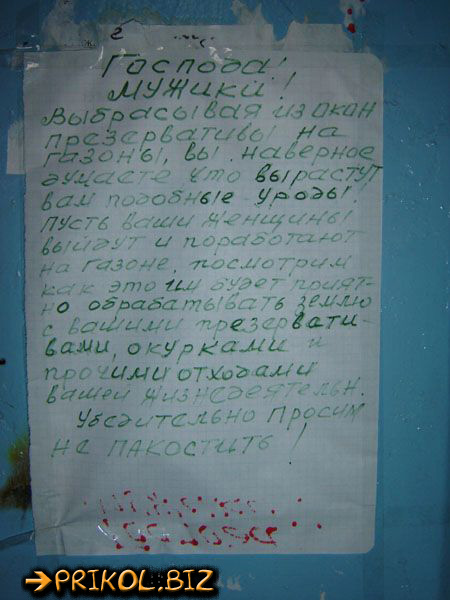 Господа!
Мужики!
Выбрасывая из окон
презервативы на
газоны, вы наверное
думаете что вырастут
вам подобные уроды!
Пусть ваши женщины
выйдут и поработают
на газоне, посмотрим
как это им будет прият-
но обрабатывать землю
с вашими презервати-
вами, окурками и
прочими отходами
вашей жизнедеятельн.
Убедительно просим
не пакостить!
PRIKOL.BIZ